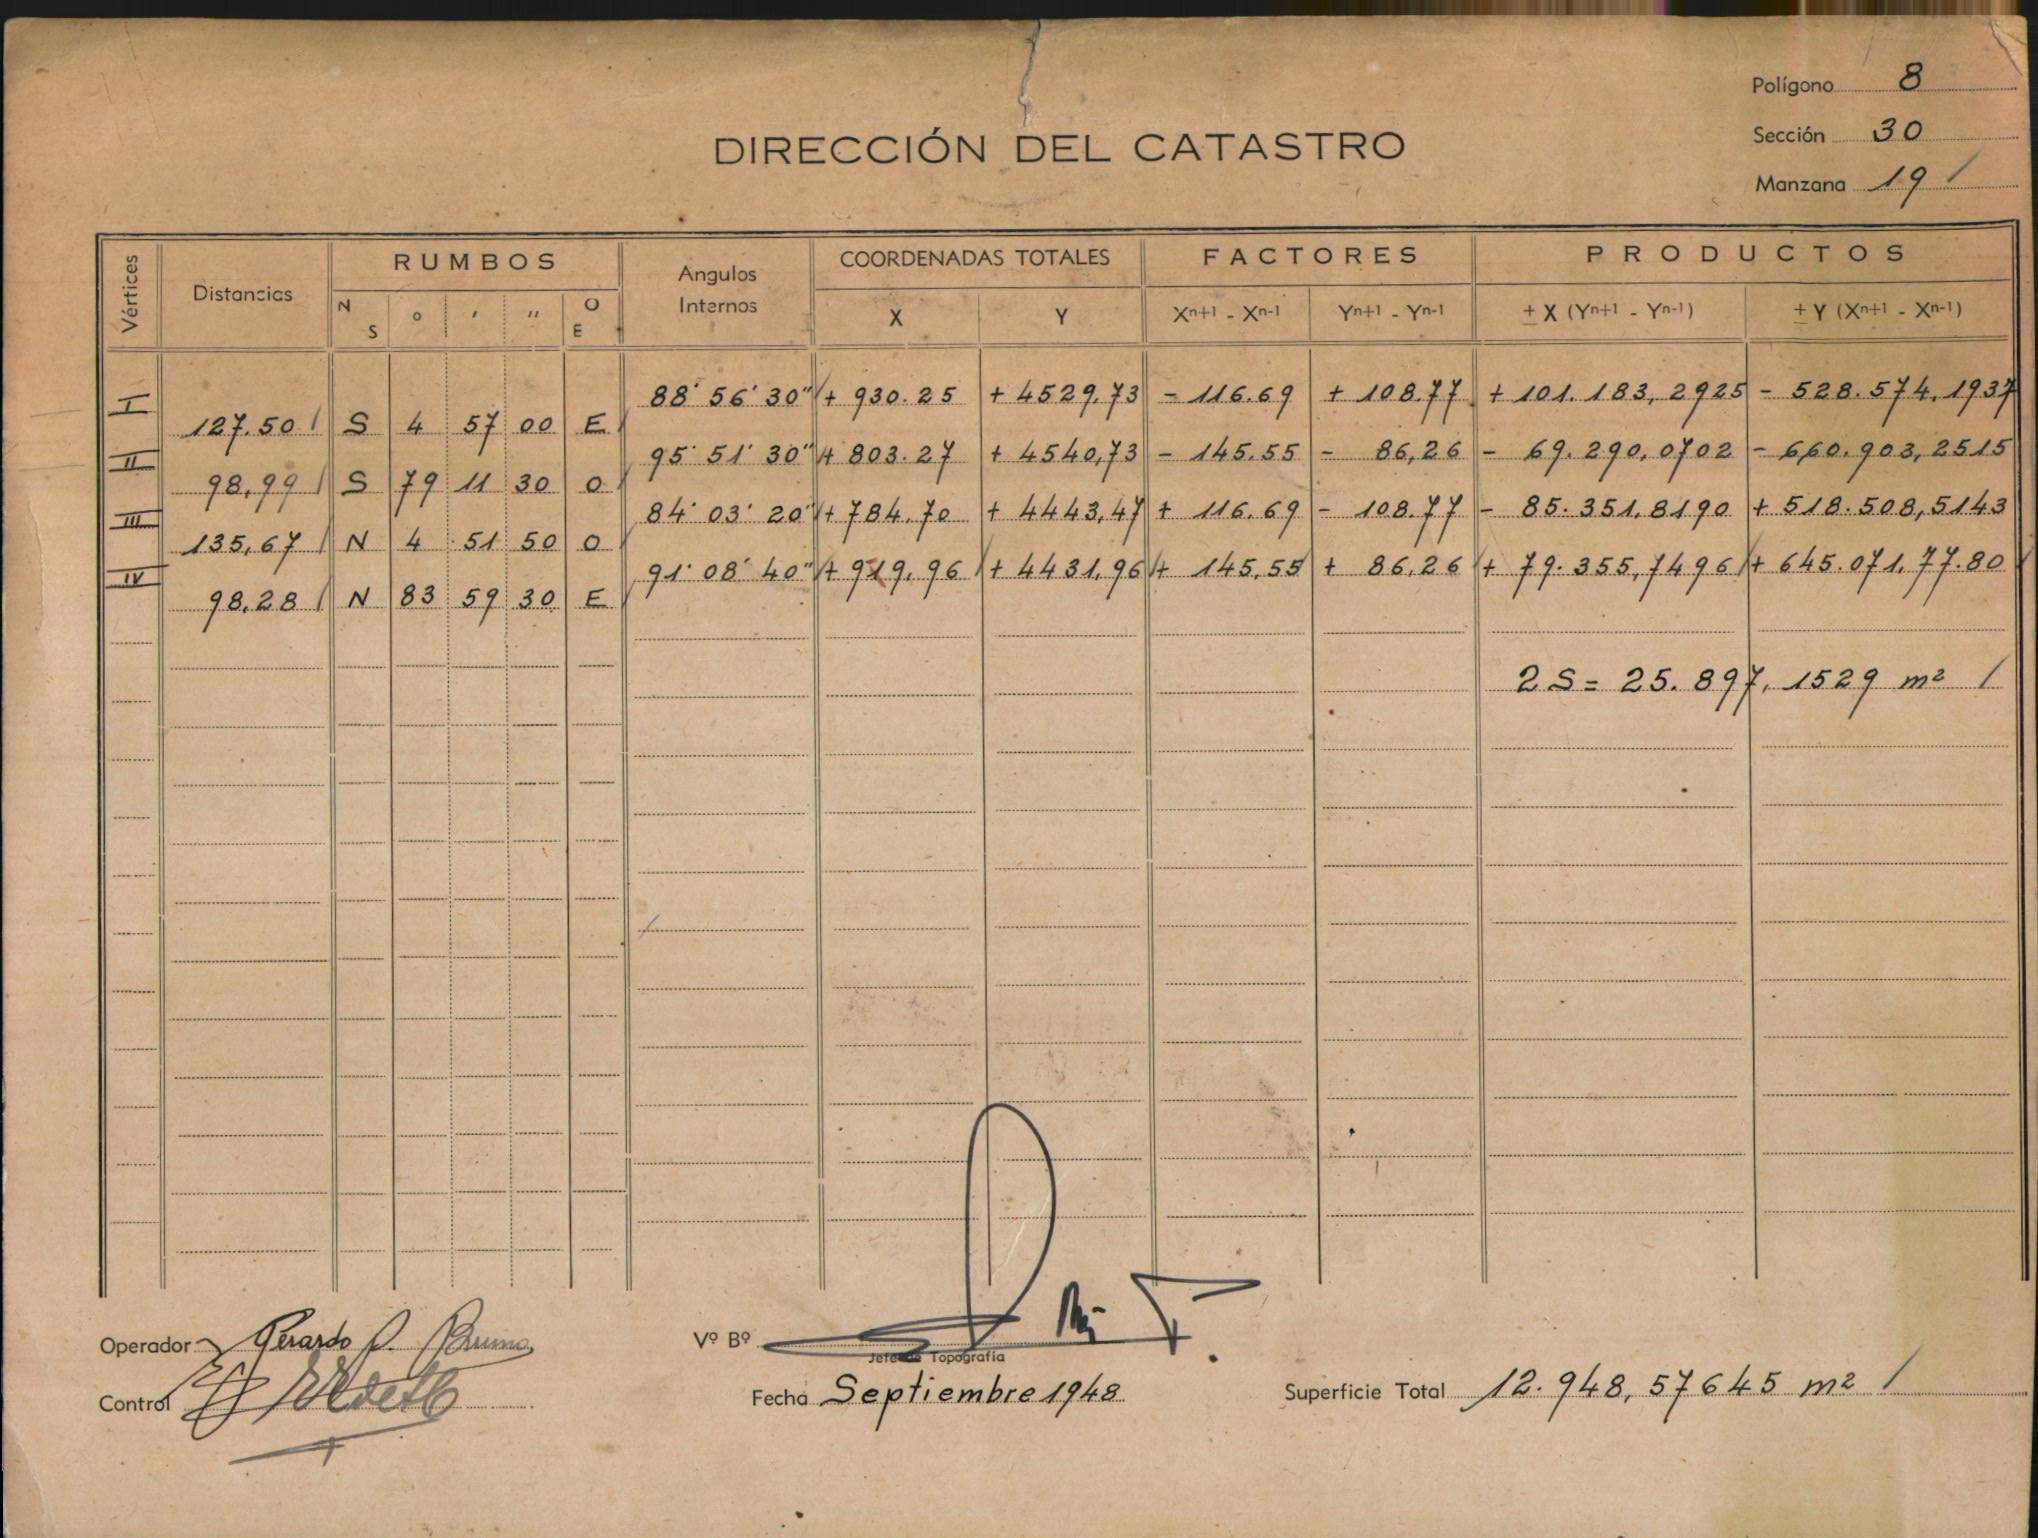 Polígono 8
Sección 30
DIRECCIÓN DEL CATASTRO
Manzana 19 /
Vértices Distancias RUMBOS Angulos Internos COORDENADAS TOTALES FACTORES PRODUCTOS
N S ° ' " O E X Y Xn+1 - Xn-1 Yn+1 - Yn-1 ± X (Yn+1 - Yn-1) ± Y (Xn+1 - Xn-1)
I 88° 56' 30" + 930.25 + 4529,73 - 116.69 + 108.77 + 101.183,2925 - 528.574,1937
127.50 / S 4 57 00 E
II 95° 51' 30" + 803.27 + 4540,73 - 145.55 - 86,26 - 69.290,0702 - 660.903,2515
98,99 / S 79 11 30 O
III 84° 03' 20" + 784.70 + 4443,47 + 116.69 - 108.77 - 85.351,8190 + 518.508,5143
135,67 / N 4 51 50 O
IV 91° 08' 40" + 919,96 + 4431,96 + 145,55 + 86,26 + 79.355,7496 + 645.071,77.80
98,28 / N 83 59 30 E
2 S = 25.897,1529 m² /
Operador Gerardo P. Bruno Vº Bº
Jefe de Topografía
Control Fecha Septiembre 1948 Superficie Total 12.948,57645 m² /